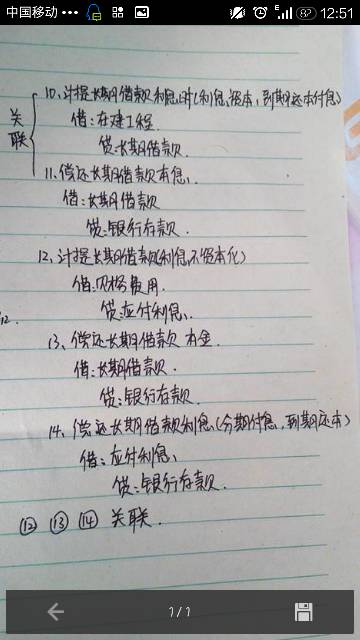 中国移动 82 12:51
10、计提长期借款利息时(利息资本,到期还本付息)
关联
借:在建工程
贷:长期借款.
11、偿还长期借款本息、
借:长期借款
贷:银行存款.
12、计提长期借款(利息不资本化)
借:财务费用.
贷:应付利息、
12.
13、偿还长期借款本金.
借:长期借款.
贷:银行存款.
14、偿还长期借款利息(分期付息,到期还本)
借:应付利息、
贷:银行存款.
⑫ ⑬ ⑭ 关联.
1/1